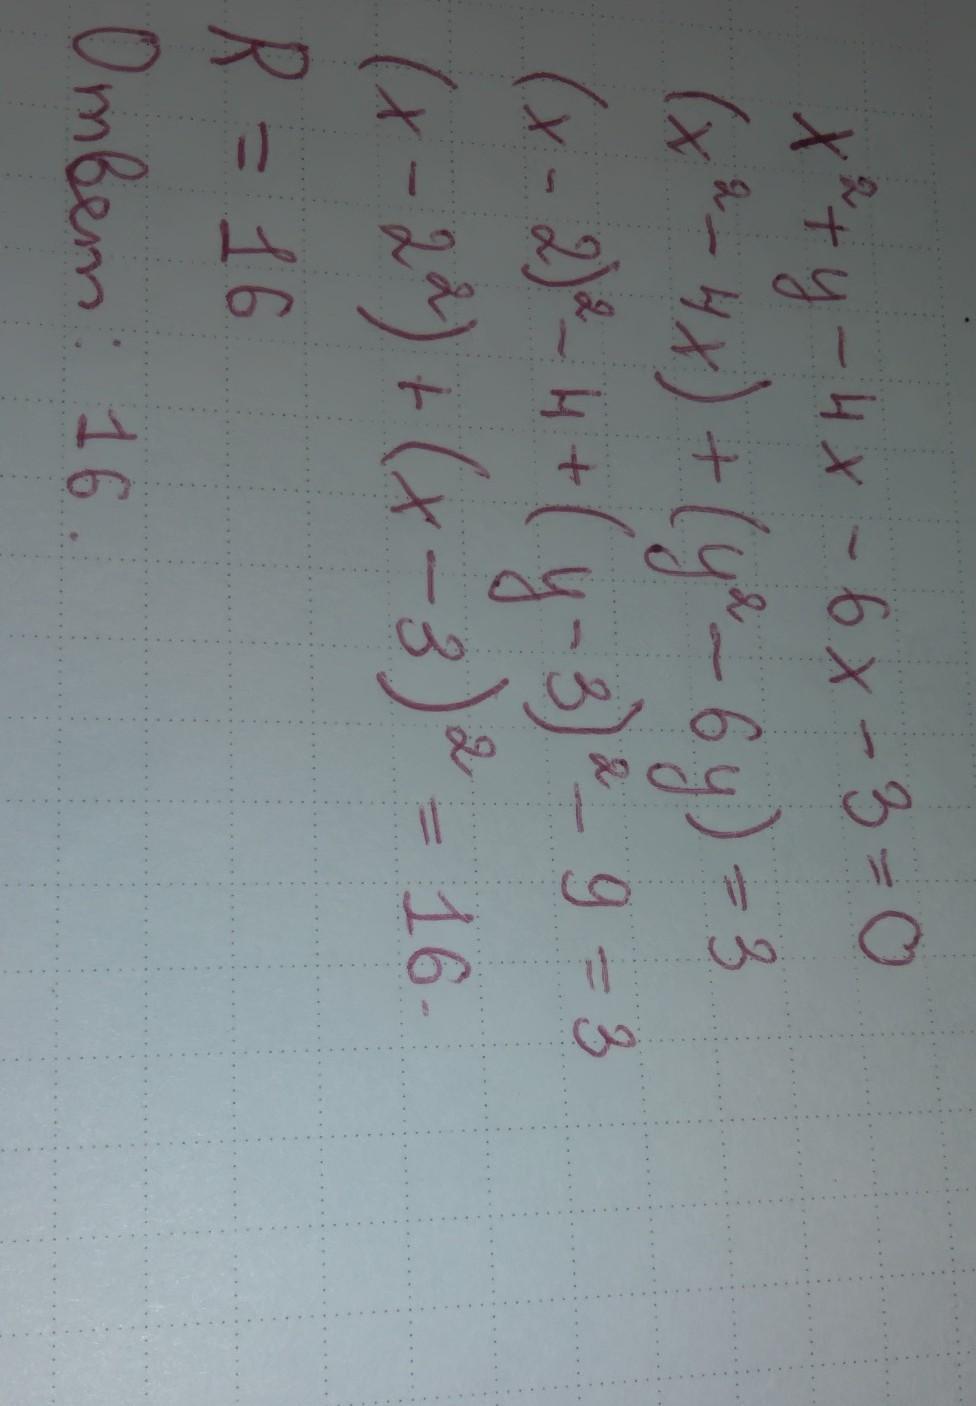 x² + y - 4x - 6x - 3 = 0
(x² - 4x) + (y² - 6y) = 3
(x - 2)² - 4 + (y - 3)² - 9 = 3
(x - 2²) + (x - 3)² = 16.
R = 16
Ответ: 16.